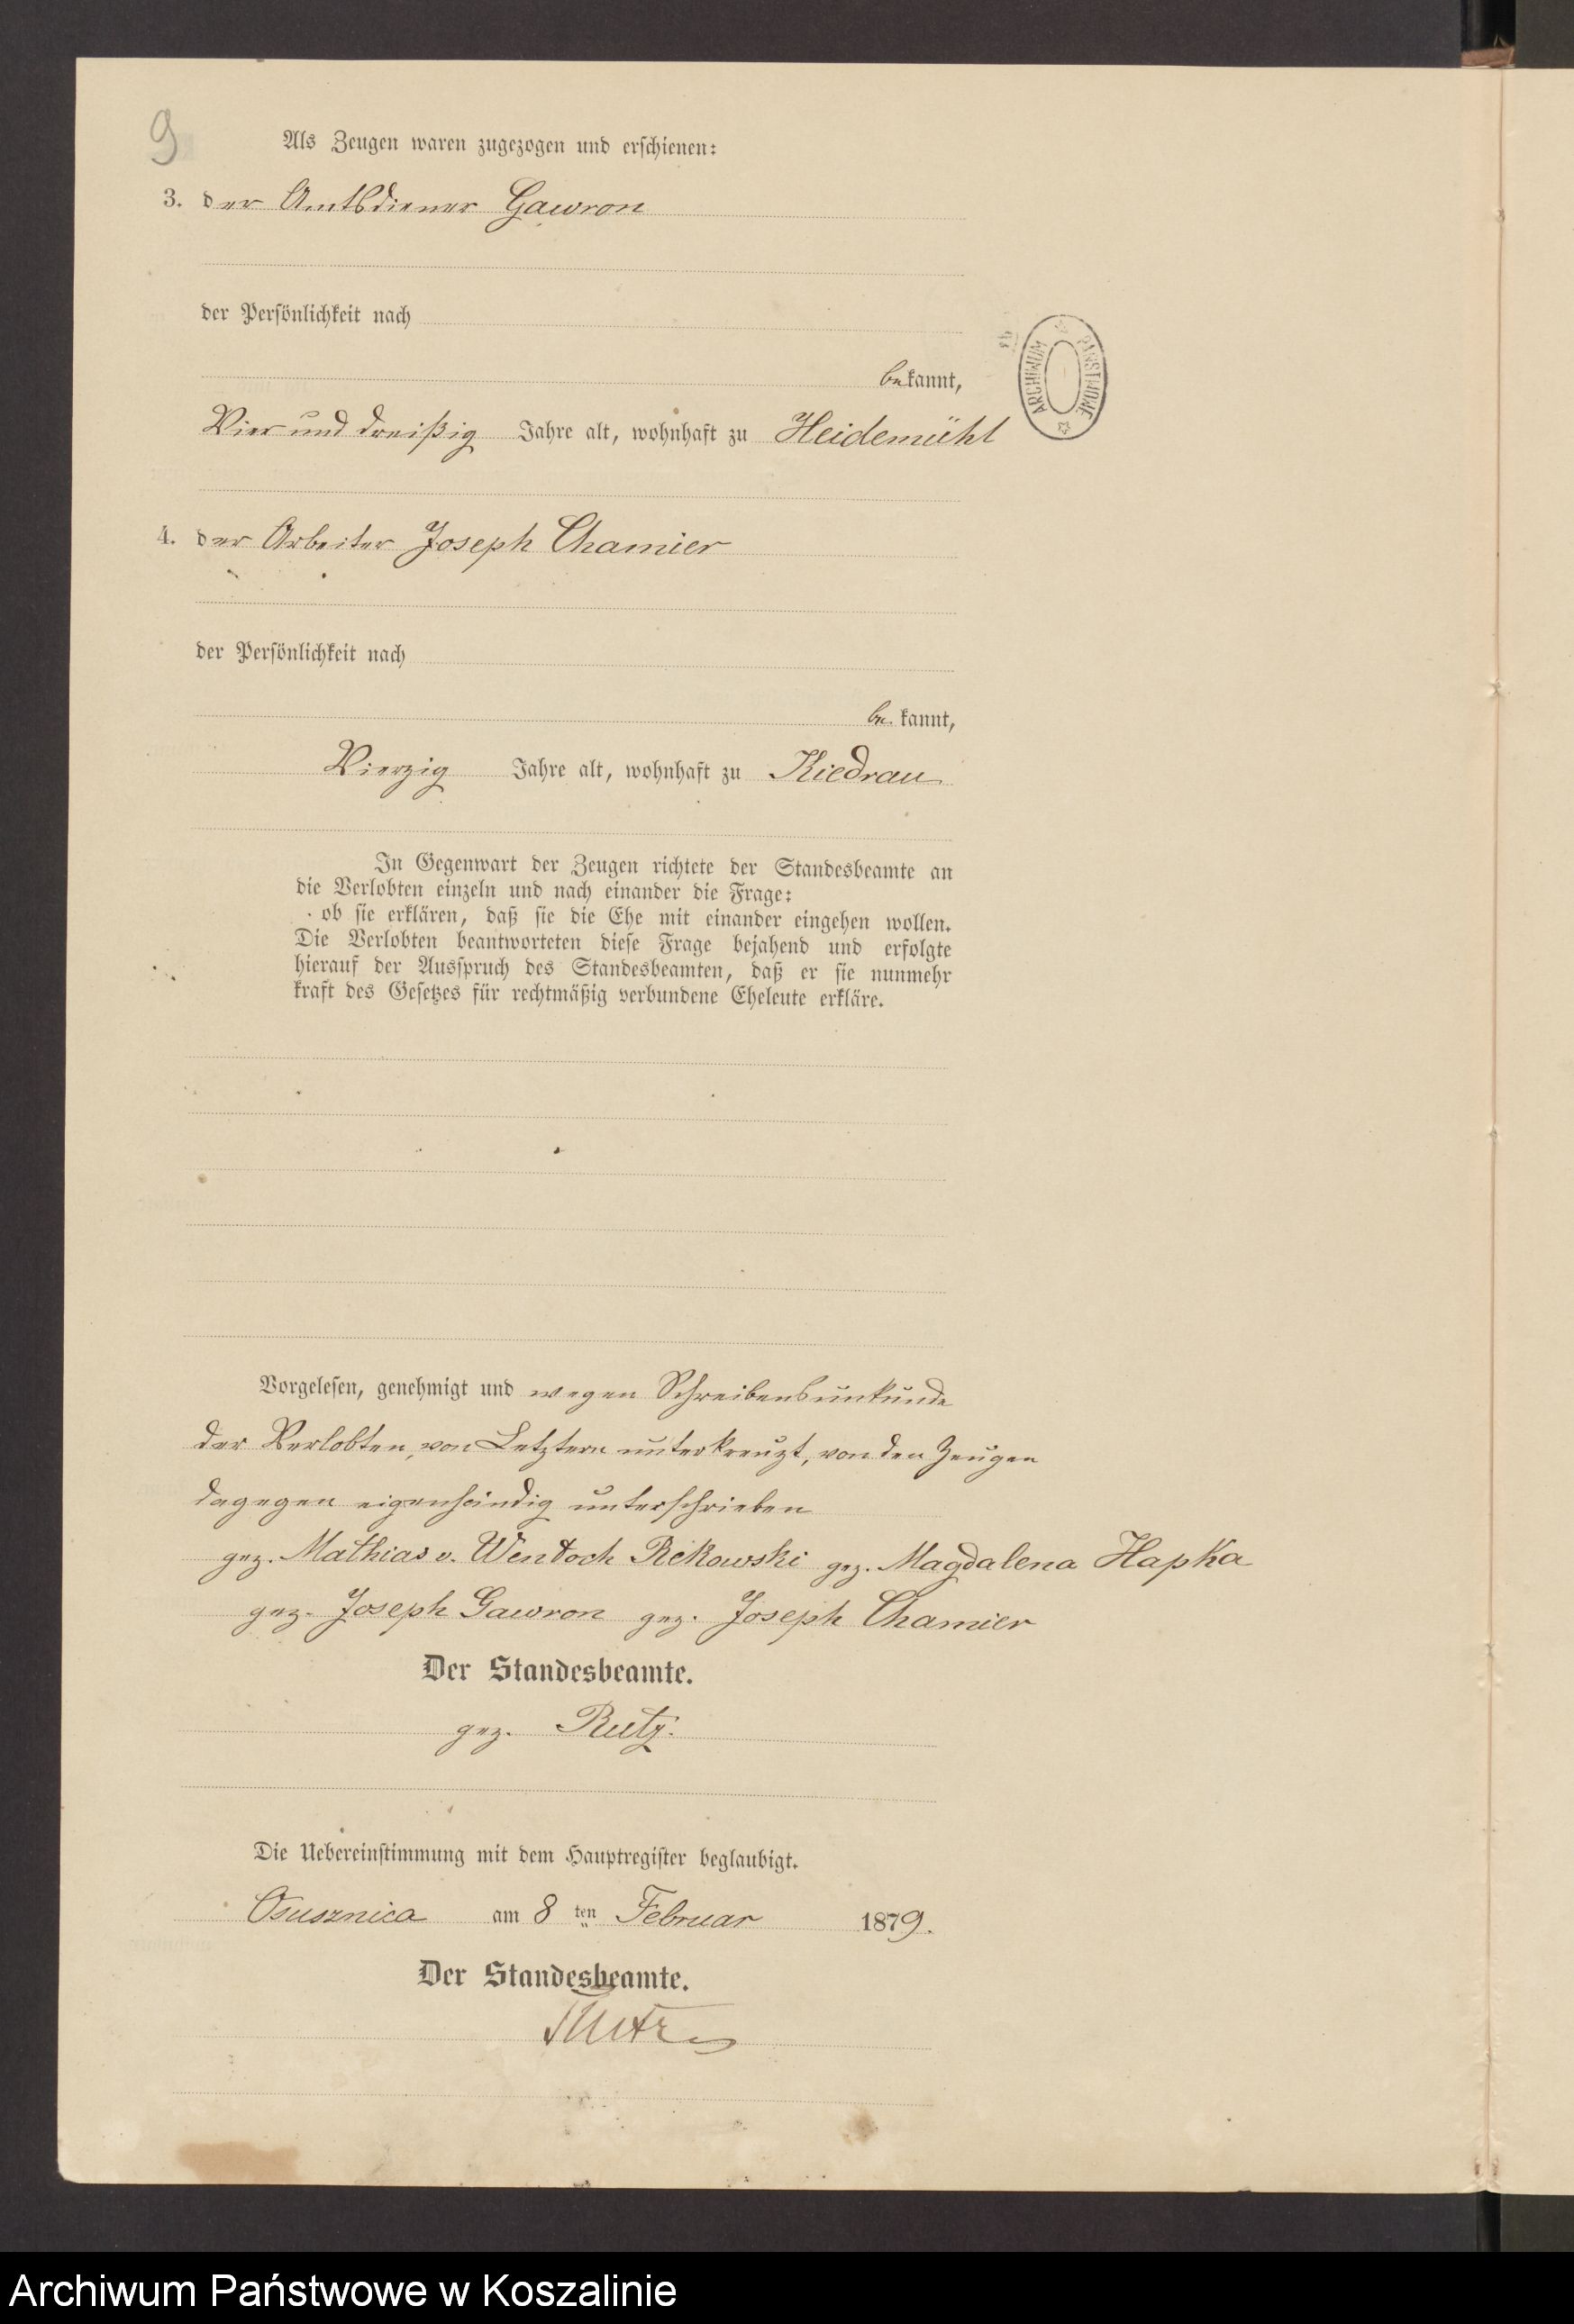 9
Als Zeugen waren zugezogen und erschienen:
3. der Amtsdiener Gawron
der Persönlichkeit nach
bekannt,
Vier und dreißig Jahre alt, wohnhaft zu Heidemühl
ARCHIWUM PAŃSTWOWE
4. der Arbeiter Joseph Chamier
der Persönlichkeit nach
be kannt,
Vierzig Jahre alt, wohnhaft zu Kiedrau
In Gegenwart der Zeugen richtete der Standesbeamte an
die Verlobten einzeln und nach einander die Frage:
ob sie erklären, daß sie die Ehe mit einander eingehen wollen.
Die Verlobten beantworteten diese Frage bejahend und erfolgte
hierauf der Ausspruch des Standesbeamten, daß er sie nunmehr
kraft des Gesetzes für rechtmäßig verbundene Eheleute erkläre.
Vorgelesen, genehmigt und wegen Schreibensunkunde
der Verlobten, von Letztern unterkreuzt, von den Zeugen
dagegen eigenhändig unterschrieben
gez. Mathias v. Wentoch Rekowski gez. Magdalena Hapka
gez. Joseph Gawron gez. Joseph Chamier
Der Standesbeamte.
gez. Rutz.
Die Uebereinstimmung mit dem Hauptregister beglaubigt.
Osusznica am 8 ten Februar 1879.
Der Standesbeamte.
Rutz
Archiwum Państwowe w Koszalinie